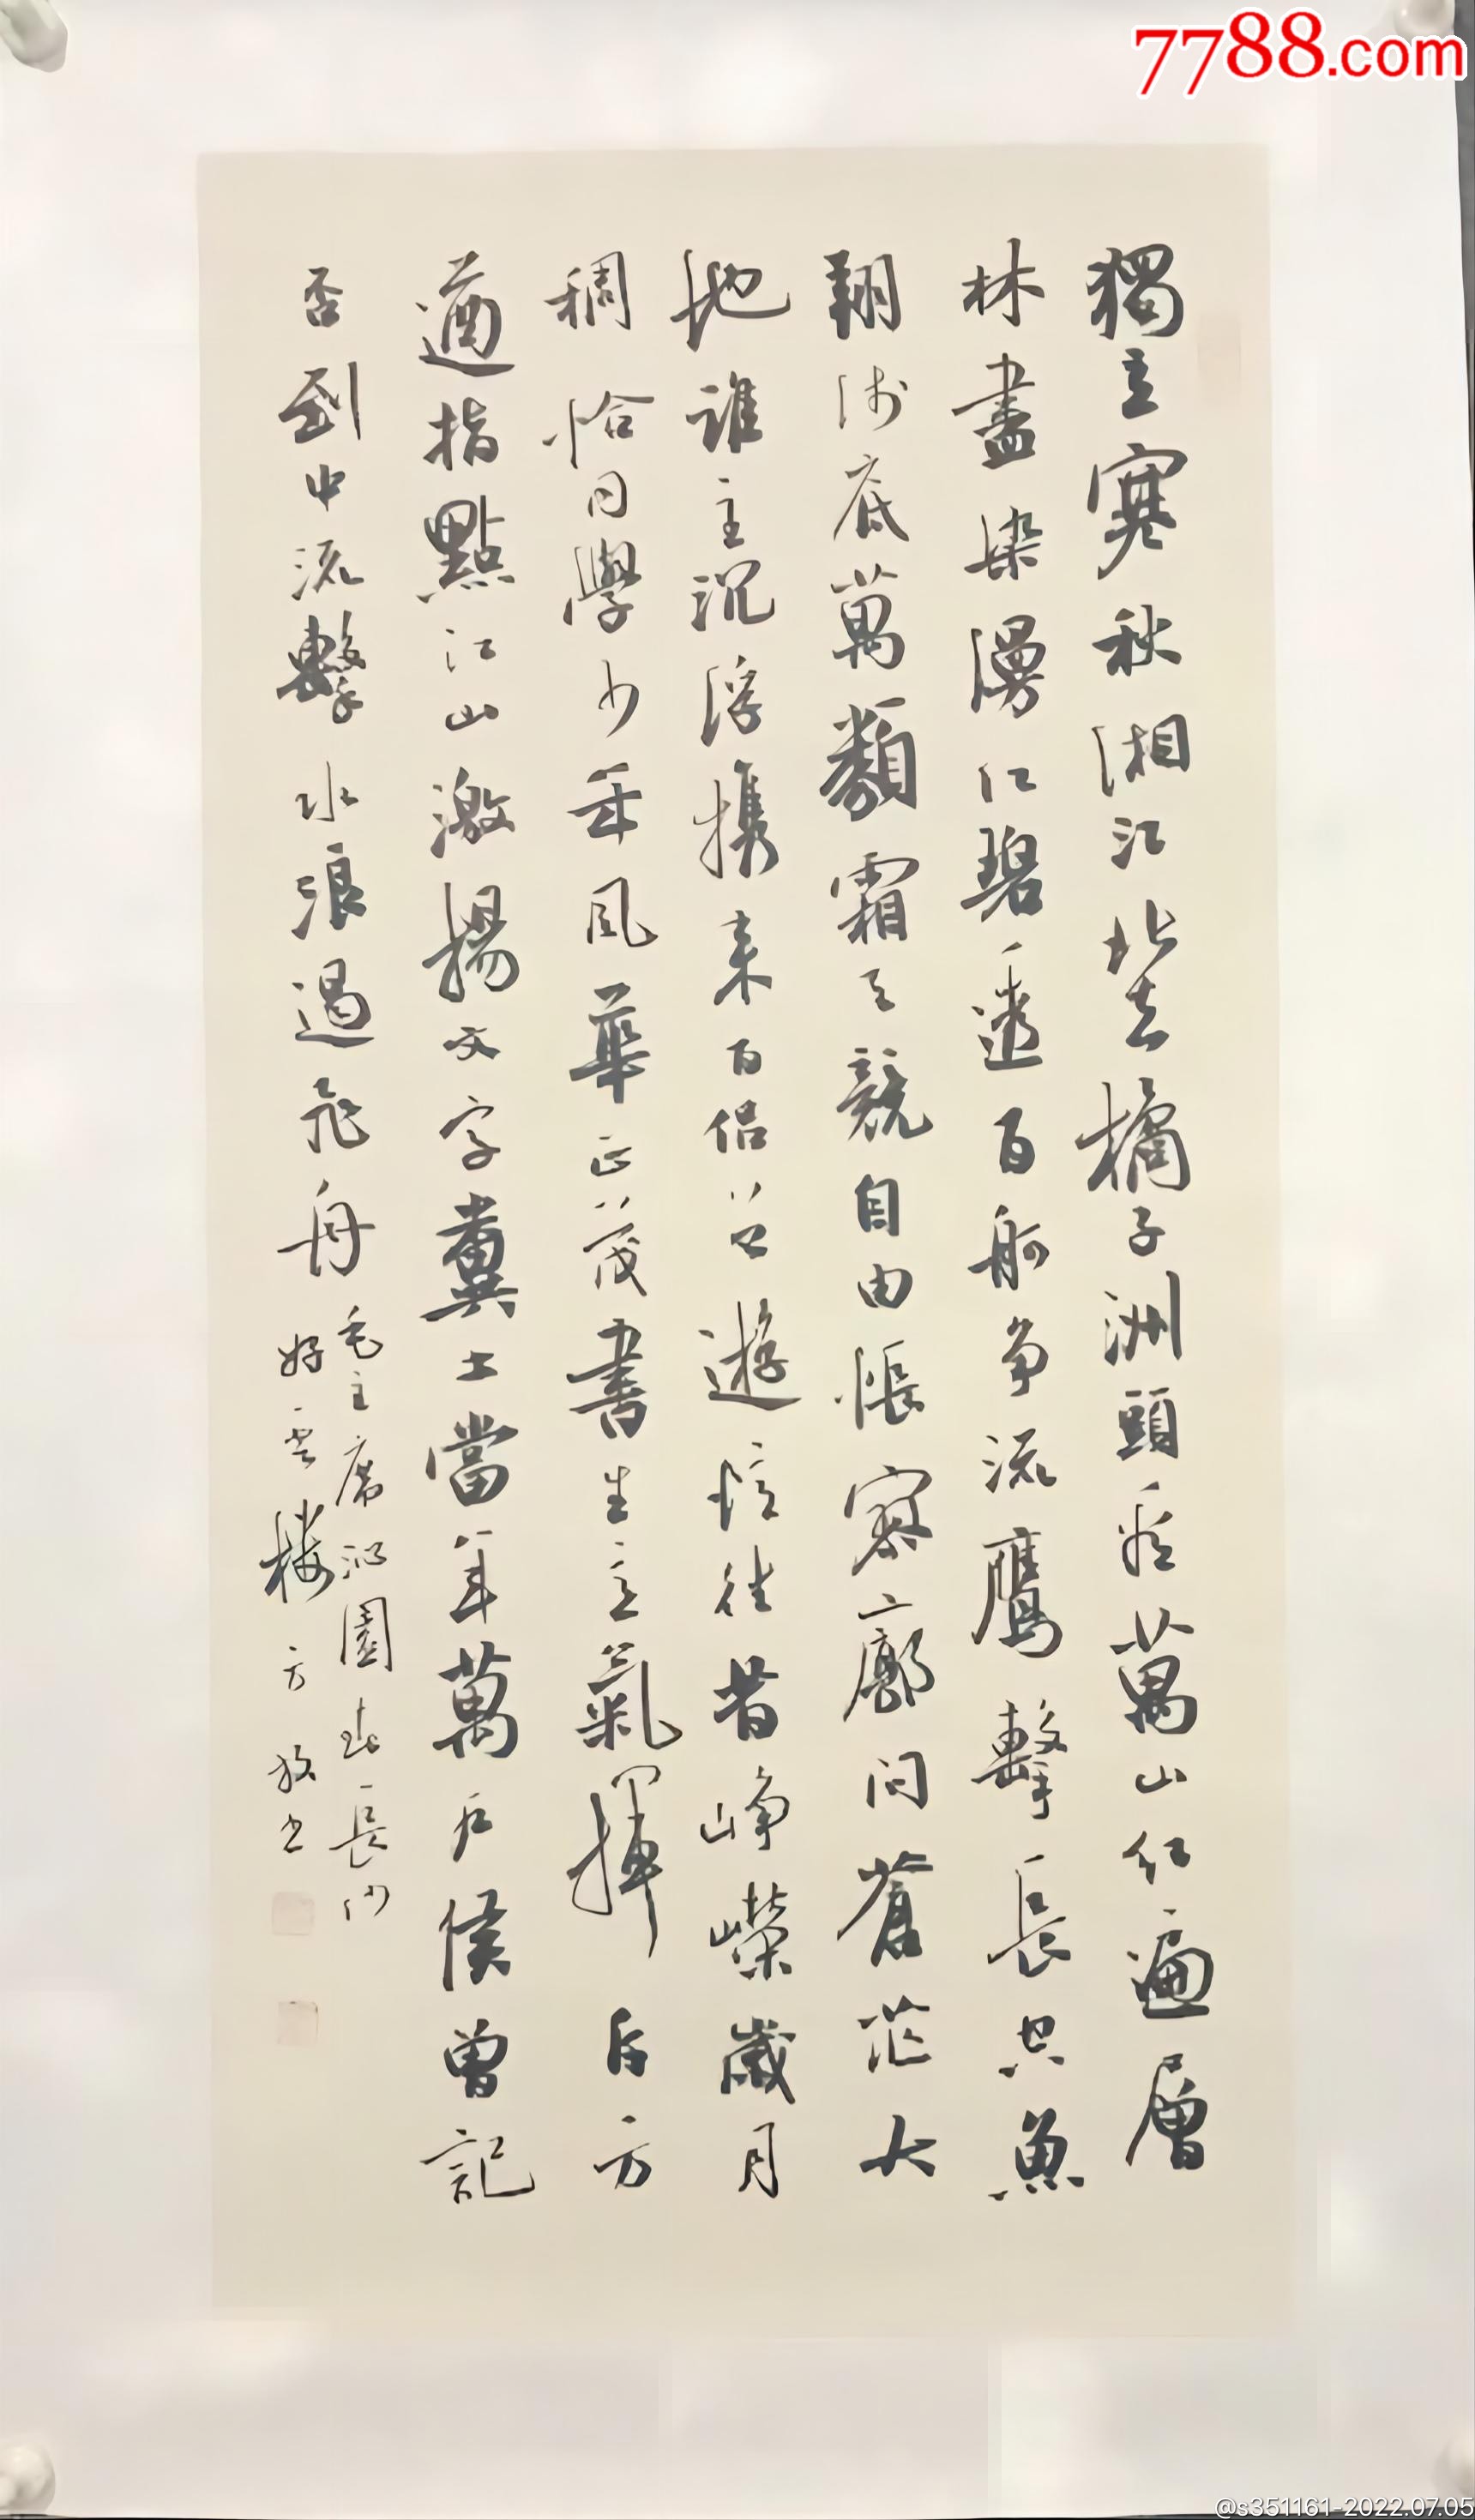 7788.com
獨立寒秋湘江北去橘子洲頭看萬山紅遍層
林盡染漫江碧透百舸争流鷹擊長空魚
翔淺底萬類霜天競自由悵寥廓問蒼茫大
地誰主沉浮携來百侣曾遊憶往昔崢嶸歲月
稠恰同學少年風華正茂書生意氣揮斥方
遒指點江山激揚文字糞土當年萬户侯曾記
否到中流擊水浪遏飛舟
毛主席沁園春長沙
好雲楼方放书
@s351161-2022.07.05